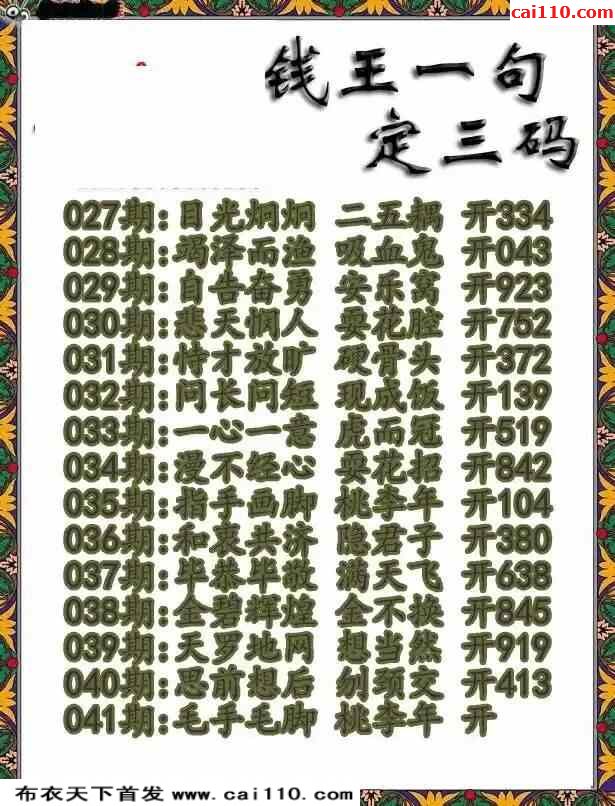 cai110.com
钱王一句
定三码
027期:目光炯炯 二五耦 开334
028期:竭泽而渔 吸血鬼 开043
029期:自告奋勇 安乐窝 开923
030期:悲天悯人 耍花腔 开752
031期:恃才放旷 硬骨头 开372
032期:问长问短 现成饭 开139
033期:一心一意 虎而冠 开519
034期:漫不经心 耍花招 开842
035期:指手画脚 桃李年 开104
036期:和衷共济 隐君子 开380
037期:毕恭毕敬 满天飞 开638
038期:金碧辉煌 金不换 开845
039期:天罗地网 想当然 开919
040期:思前想后 刎颈交 开413
041期:毛手毛脚 桃李年 开
布衣天下首发 www.cai110.com